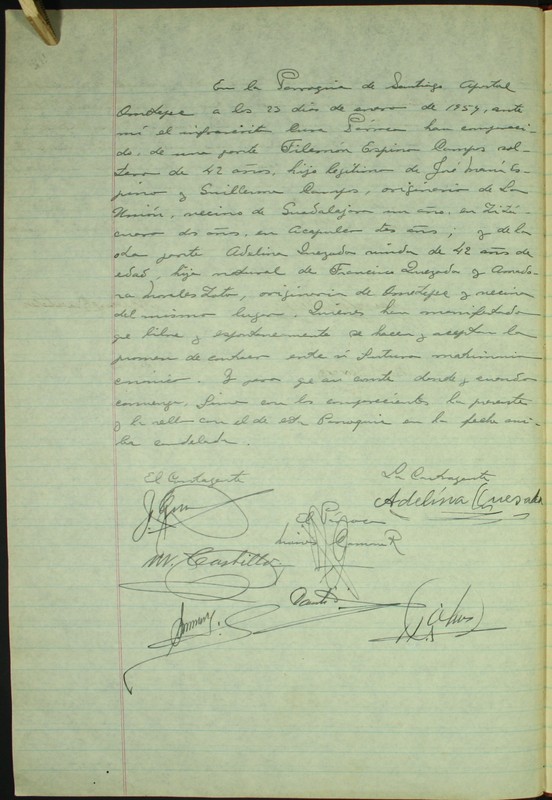 En la Parroquia de Santiago Apostol
Ometepec a los 23 dias de enero de 1959, ante
mi el infrascrito Cura Párroco han compareci-
do, de una parte Filemón Espino Campos sol-
tero de 42 años, hijo legítimo de José María Es-
pino y Guillerma Campos, originario de La
Unión, vecino de Guadalajara un año, en
dos años, en Acapulco tes años; y de la
ota parte Adelina Quezada viuda de 42 años de
edad, hija natural de Francisco Quezada y
Morales, originaria de Ometepec y vecina
del mismo lugar. Quienes han manifestado
qe libre y espontaneamente se hacen y aceptan la
promesa de contraer entre si futuro matrimonio
canónico. Y para qe asi conste donde y cuando
convenga, firmo con los comparecientes la presente
y la sello con el de esta Parroquia en la fecha
El Contrayente
La Contrayente
Adelina Quesada
El Párroco
M. Castillo